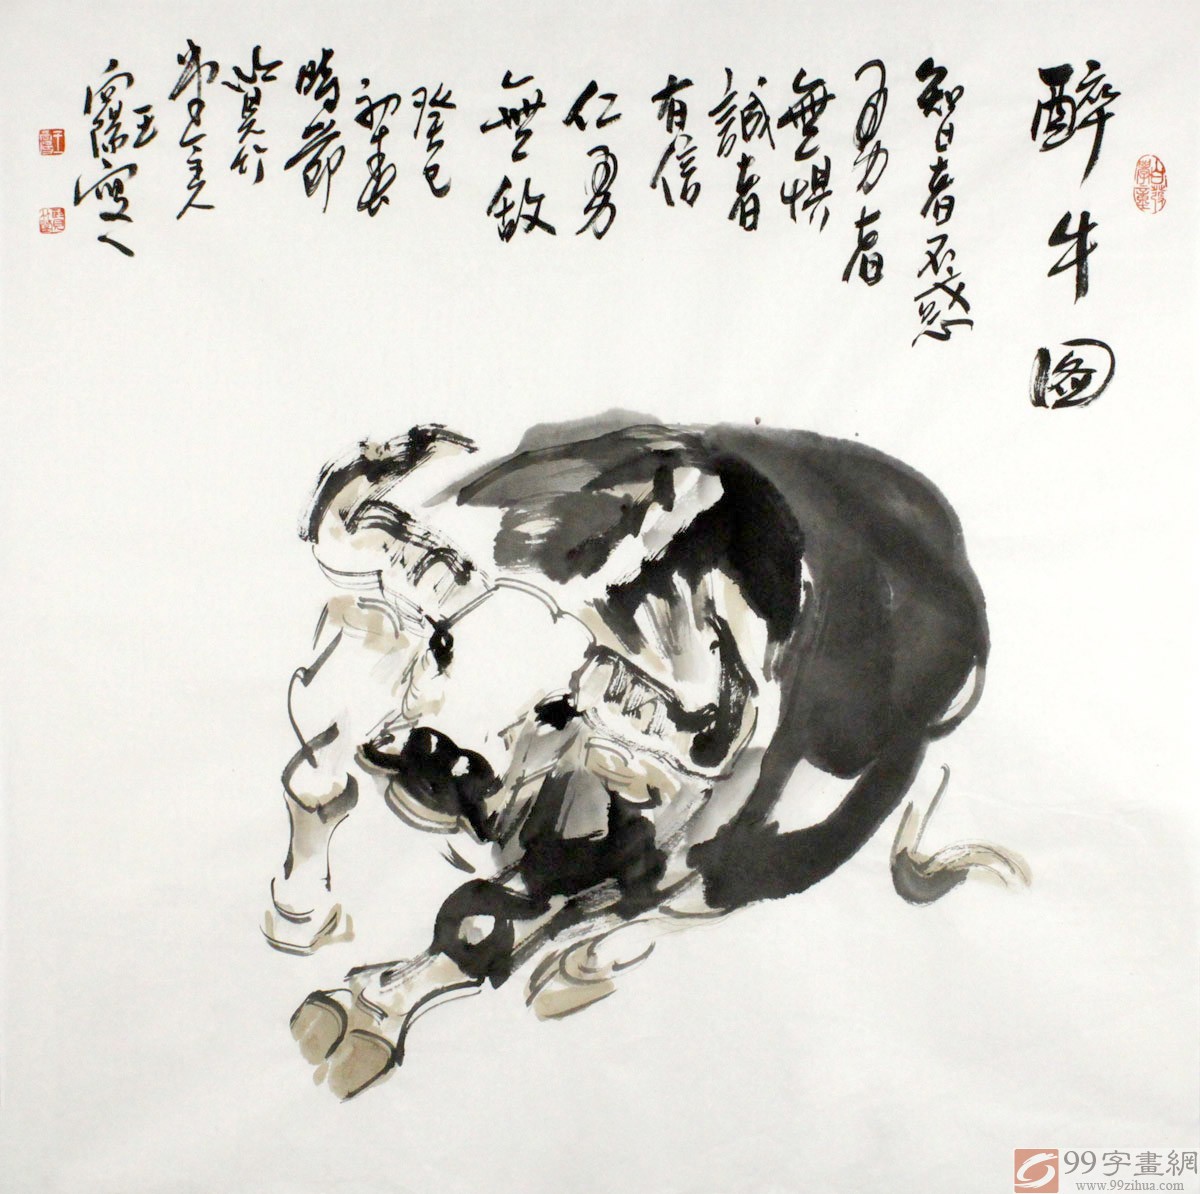 醉牛图
智者不惑
勇者
無惧
誠者
有信
仁勇
無敌
癸巳
初春
時節
向陽寫
99字畫網
www.99zihua.com